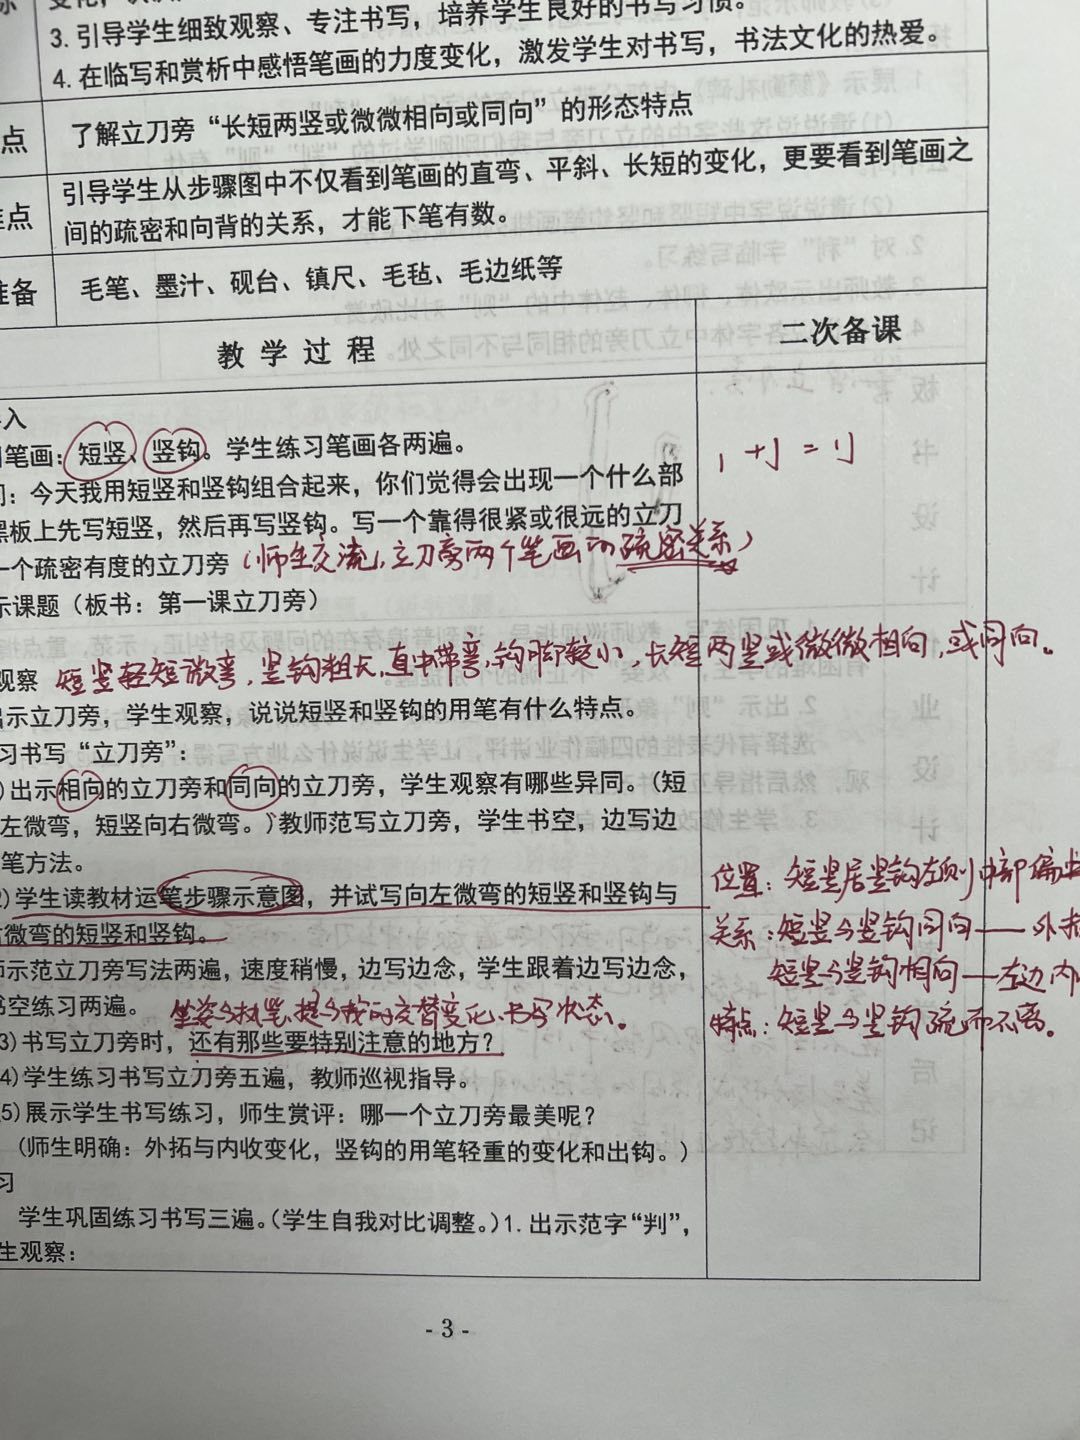 3. 引导学生细致观察、专注书写，培养学生良好的书写习惯。
4. 在临写和赏析中感悟笔画的力度变化，激发学生对书写，书法文化的热爱。
点 了解立刀旁“长短两竖或微微相向或同向”的形态特点
引导学生从步骤图中不仅看到笔画的直弯、平斜、长短的变化，更要看到笔画之
点 间的疏密和向背的关系，才能下笔有数。
准备 毛笔、墨汁、砚台、镇尺、毛毡、毛边纸等
教学过程 二次备课
入
笔画：短竖、竖钩。学生练习笔画各两遍。
：今天我用短竖和竖钩组合起来，你们觉得会出现一个什么部
黑板上先写短竖，然后再写竖钩。写一个靠得很紧或很远的立刀
一个疏密有度的立刀旁（师生交流，立刀旁两个笔画的疏密关系）
示课题（板书：第一课立刀旁）
短竖轻短微弯，竖钩粗长，直中带弯，钩脚较小，长短两竖或微微相向，或同向。
观察
出示立刀旁，学生观察，说说短竖和竖钩的用笔有什么特点。
习书写“立刀旁”：
）出示相向的立刀旁和同向的立刀旁，学生观察有哪些异同。（短
左微弯，短竖向右微弯。）教师范写立刀旁，学生书空，边写边
笔方法。
2)学生读教材运笔步骤示意图，并试写向左微弯的短竖和竖钩与
右微弯的短竖和竖钩。
师示范立刀旁写法两遍，速度稍慢，边写边念，学生跟着边写边念，
书空练习两遍。 坐姿与执笔，提与按的交替变化、书写状态。
3)书写立刀旁时，还有那些要特别注意的地方？
4)学生练习书写立刀旁五遍，教师巡视指导。
5)展示学生书写练习，师生赏评：哪一个立刀旁最美呢？
（师生明确：外拓与内收变化，竖钩的用笔轻重的变化和出钩。）
习
学生巩固练习书写三遍。（学生自我对比调整。）1. 出示范字“判”，
生观察：
位置：短竖居竖钩左侧中部偏
关系：短竖与竖钩同向——外
短竖与竖钩相向——左边内
特点：短竖与竖钩疏而不离。
- 3 -